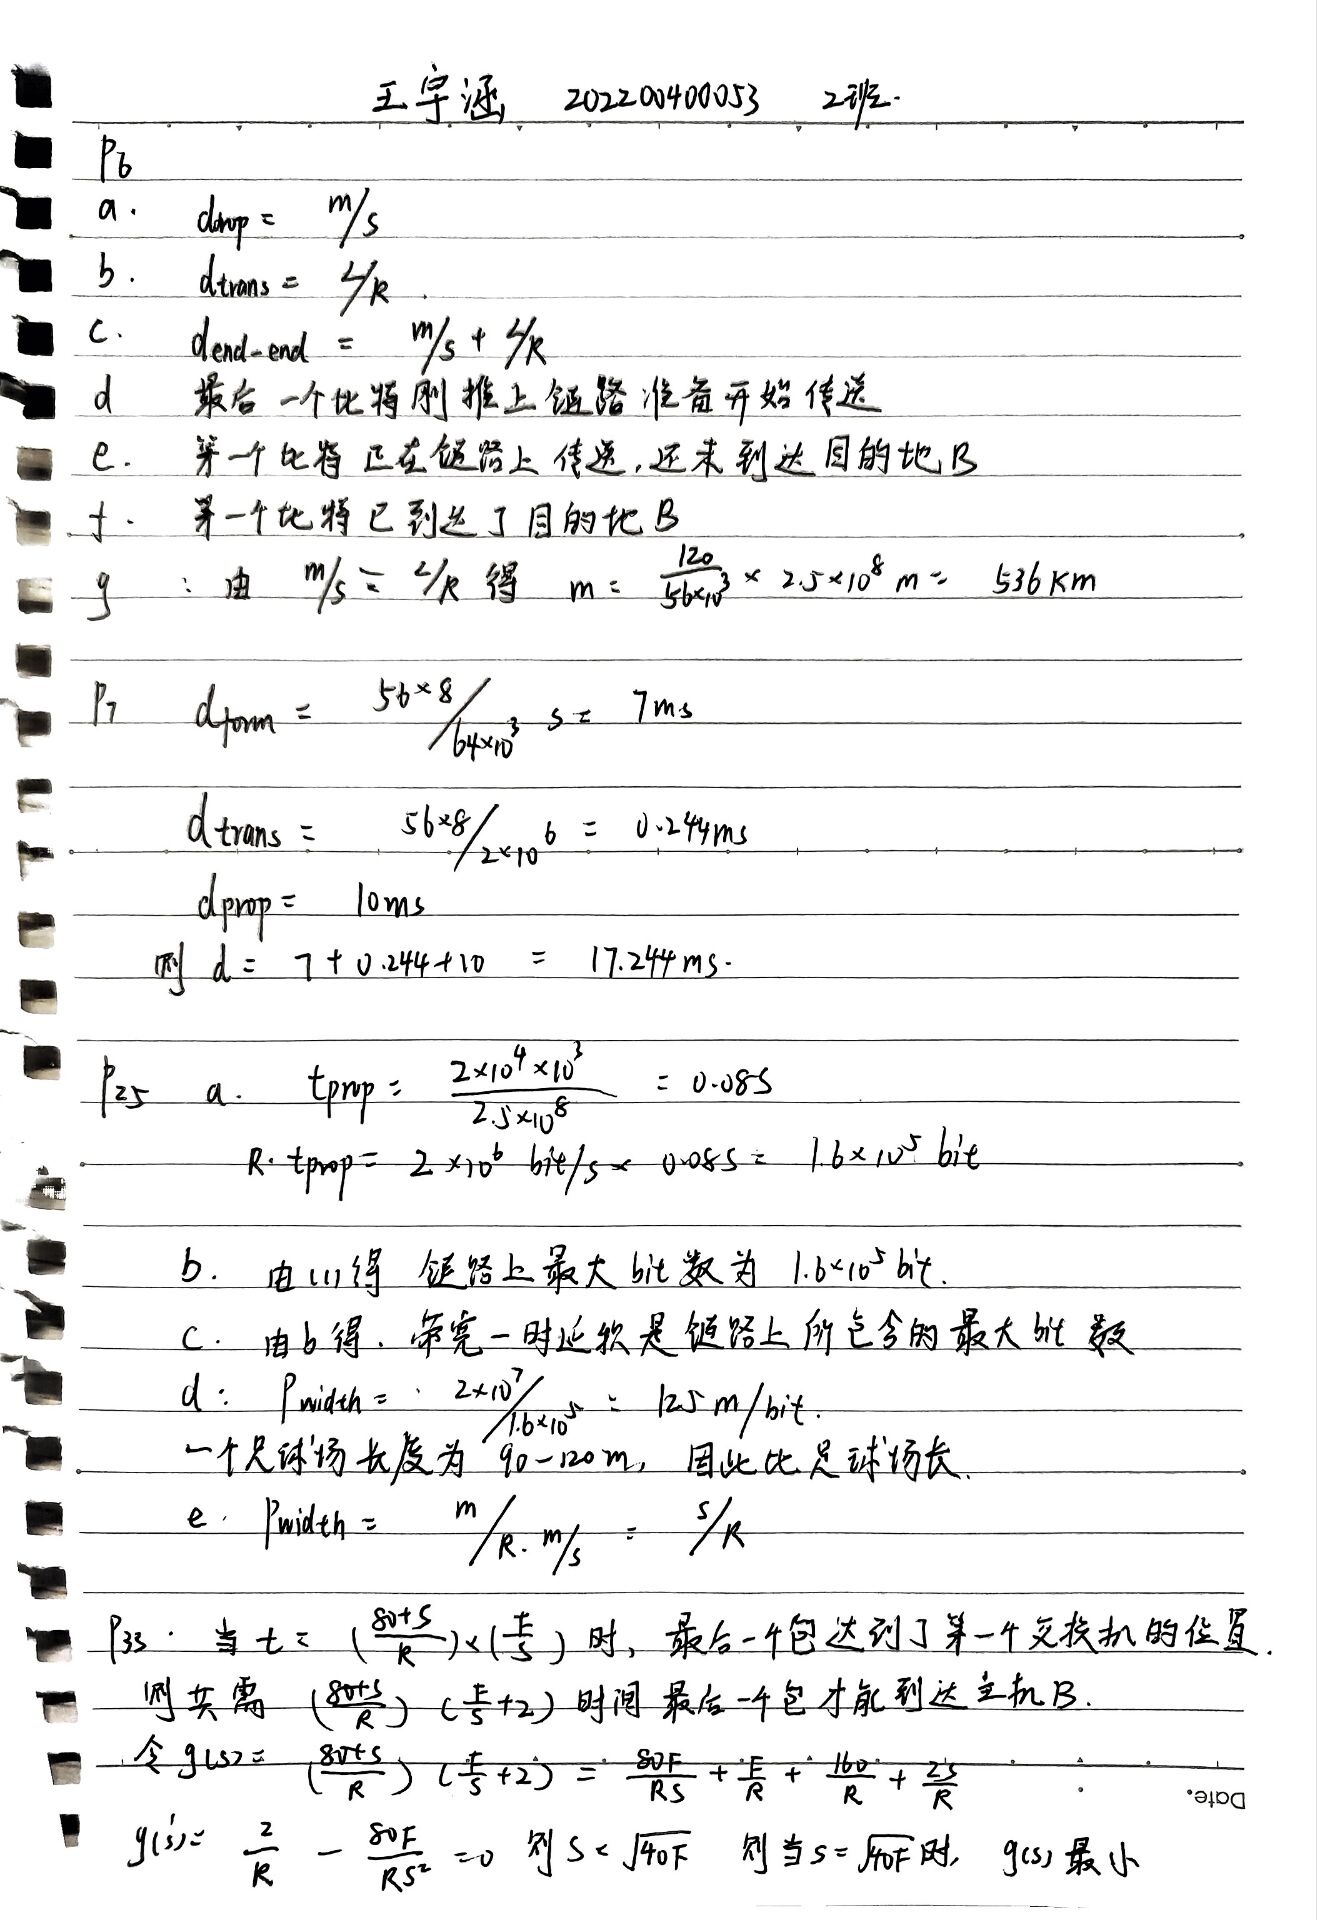 王宇涵 202200400053 2班.
P6
a. dprop = m/s
b. dtrans = L/R.
c. dend-end = m/s + L/R
d 最后一个比特刚推上链路准备开始传送
e. 第一个比特正在链路上传送,还未到达目的地B
f. 第一个比特已到达了目的地B
g : 由 m/s = L/R 得 m = 120/56×10³ × 2.5×10⁸ m = 536 km
P7 dform = 56×8/64×10³ s = 7ms
dtrans = 56×8/2×10⁶ = 0.244ms
dprop = 10ms
则 d = 7+0.244+10 = 17.244ms.
P25 a. tprop = 2×10⁴×10³/2.5×10⁸ = 0.08s
R·tprop = 2×10⁶ bit/s × 0.08s = 1.6×10⁵ bit
b. 由(1)得 链路上最大bit数为 1.6×10⁵ bit.
c. 由b得. 带宽-时延积是链路上所包含的最大bit数
d: Pwidth = 2×10⁷/1.6×10⁵ = 125 m/bit.
一个足球场长度为 90-120m, 因此比足球场长.
e. Pwidth = m/R·m/s = s/R
P33. 当 t = (80+S/R)×(F/S) 时, 最后一个包达到了第一个交换机的位置.
则共需 (80+S/R)(F/S+2) 时间最后一个包才能到达主机B.
令g(s) = (80+S/R)(F/S+2) = 80F/RS + F/R + 160/R + 2S/R
Date.
g'(s) = 2/R - 80F/RS² = 0 则 S = √40F 则当 s = √40F 时, g(s) 最小